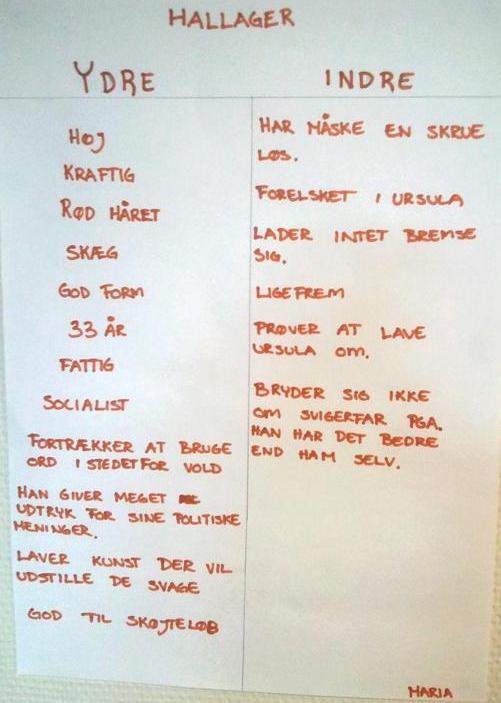 HALLAGER
YDRE
HØJ
KRAFTIG
RØD HÅRET
SKÆG
GOD FORM
33 ÅR
FATTIG
SOCIALIST
FORTRÆKKER AT BRUGE
ORD I STEDET FOR VOLD
HAN GIVER MEGET
UDTRYK FOR SINE POLITISKE
MENINGER.
LAVER KUNST DER VIL
UDSTILLE DE SVAGE
GOD TIL SKØJTELØB
INDRE
HAR MÅSKE EN SKRUE
LØS.
FORELSKET I URSULA
LADER INTET BREMSE
SIG.
LIGEFREM
PRØVER AT LAVE
URSULA OM.
BRYDER SIG IKKE
OM SVIGERFAR PGA.
HAN HAR DET BEDRE
END HAM SELV.
MARIA